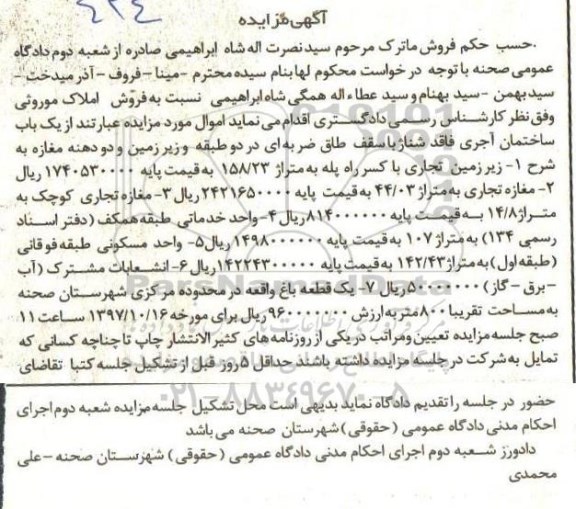 ۴۲۴
آگهی مزایده
.حسب حکم فروش ماترک مرحوم سید نصرت اله شاه ابراهیمی صادره از شعبه دوم دادگاه
عمومی صحنه با توجه درخواست محکوم لها بنام سیده محترم -مینا -فروف -آذر میدخت -
سید بهمن -سید بهنام و سید عطاء اله همگی شاه ابراهیمی نسبت به فروش املاک موروثی
وفق نظر کارشناس رسمی دادگستری اقدام می نماید اموال مورد مزایده عبارتند از یک باب
ساختمان آجری فاقد شناژ باسقف طاق ضربه ای در دو طبقه و زیر زمین و دو دهنه مغازه به
شرح ۱- زیر زمین تجاری با کسر راه پله به متراژ ۱۵۸/۲۳ به قیمت پایه ۱۷۴۰۵۳۰۰۰۰ ریال
۲- مغازه تجاری به متراژ ۴۴/۰۳ به قیمت پایه ۲۴۲۱۶۵۰۰۰۰ ریال ۳- مغازه تجاری کوچک به
متراژ ۱۴/۸ به قیمت پایه ۸۱۴۰۰۰۰۰۰ ریال ۴- واحد خدماتی طبقه همکف (دفتر اسناد
رسمی ۱۳۴) به متراژ ۱۰۷ به قیمت پایه ۱۴۹۸۰۰۰۰۰۰ ریال ۵- واحد مسکونی طبقه فوقانی
(طبقه اول) به متراژ ۱۴۲/۴۳ به قیمت پایه ۱۴۲۴۳۰۰۰۰۰ ریال ۶- انشعابات مشترک (آب
-برق -گاز) ۵۰۰۰۰۰۰۰ ریال ۷- یک قطعه باغ واقعه در محدوده مرکزی شهرستان صحنه
به مساحت تقریبا ۸۰۰ متر به ارزش ۹۶۰۰۰۰۰۰۰ ریال برای مورخه ۱۳۹۷/۱۰/۱۶ ساعت ۱۱
صبح جلسه مزایده تعیین و مراتب در یکی از روزنامه های کثیر الانتشار چاپ تا چناچه کسانی که
تمایل به شرکت در جلسه مزایده داشته باشند حداقل ۵ روز قبل از تشکیل جلسه کتبا تقاضای
حضور در جلسه را تقدیم دادگاه نماید بدیهی است محل تشکیل جلسه مزایده شعبه دوم اجرای
احکام مدنی دادگاه عمومی (حقوقی) شهرستان صحنه می باشد
دادورز شعبه دوم اجرای احکام مدنی دادگاه عمومی (حقوقی) شهرستان صحنه -علی
محمدی
ParsNamadData
۰۲۱-۸۸۳۴۹۶۷۰-۵